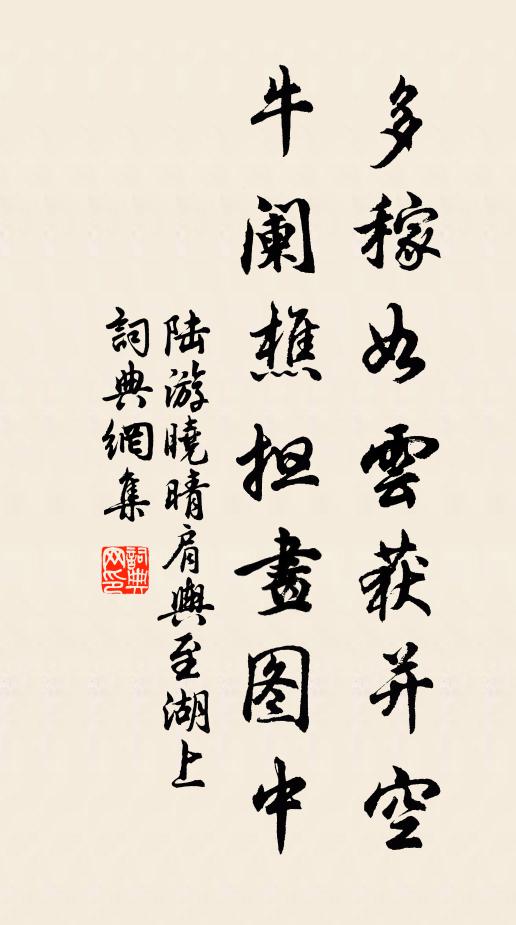 多稼如雲获并空
牛阑樵担畫图中
陆游曉晴肩輿至湖上
詞典網集
詞典网印